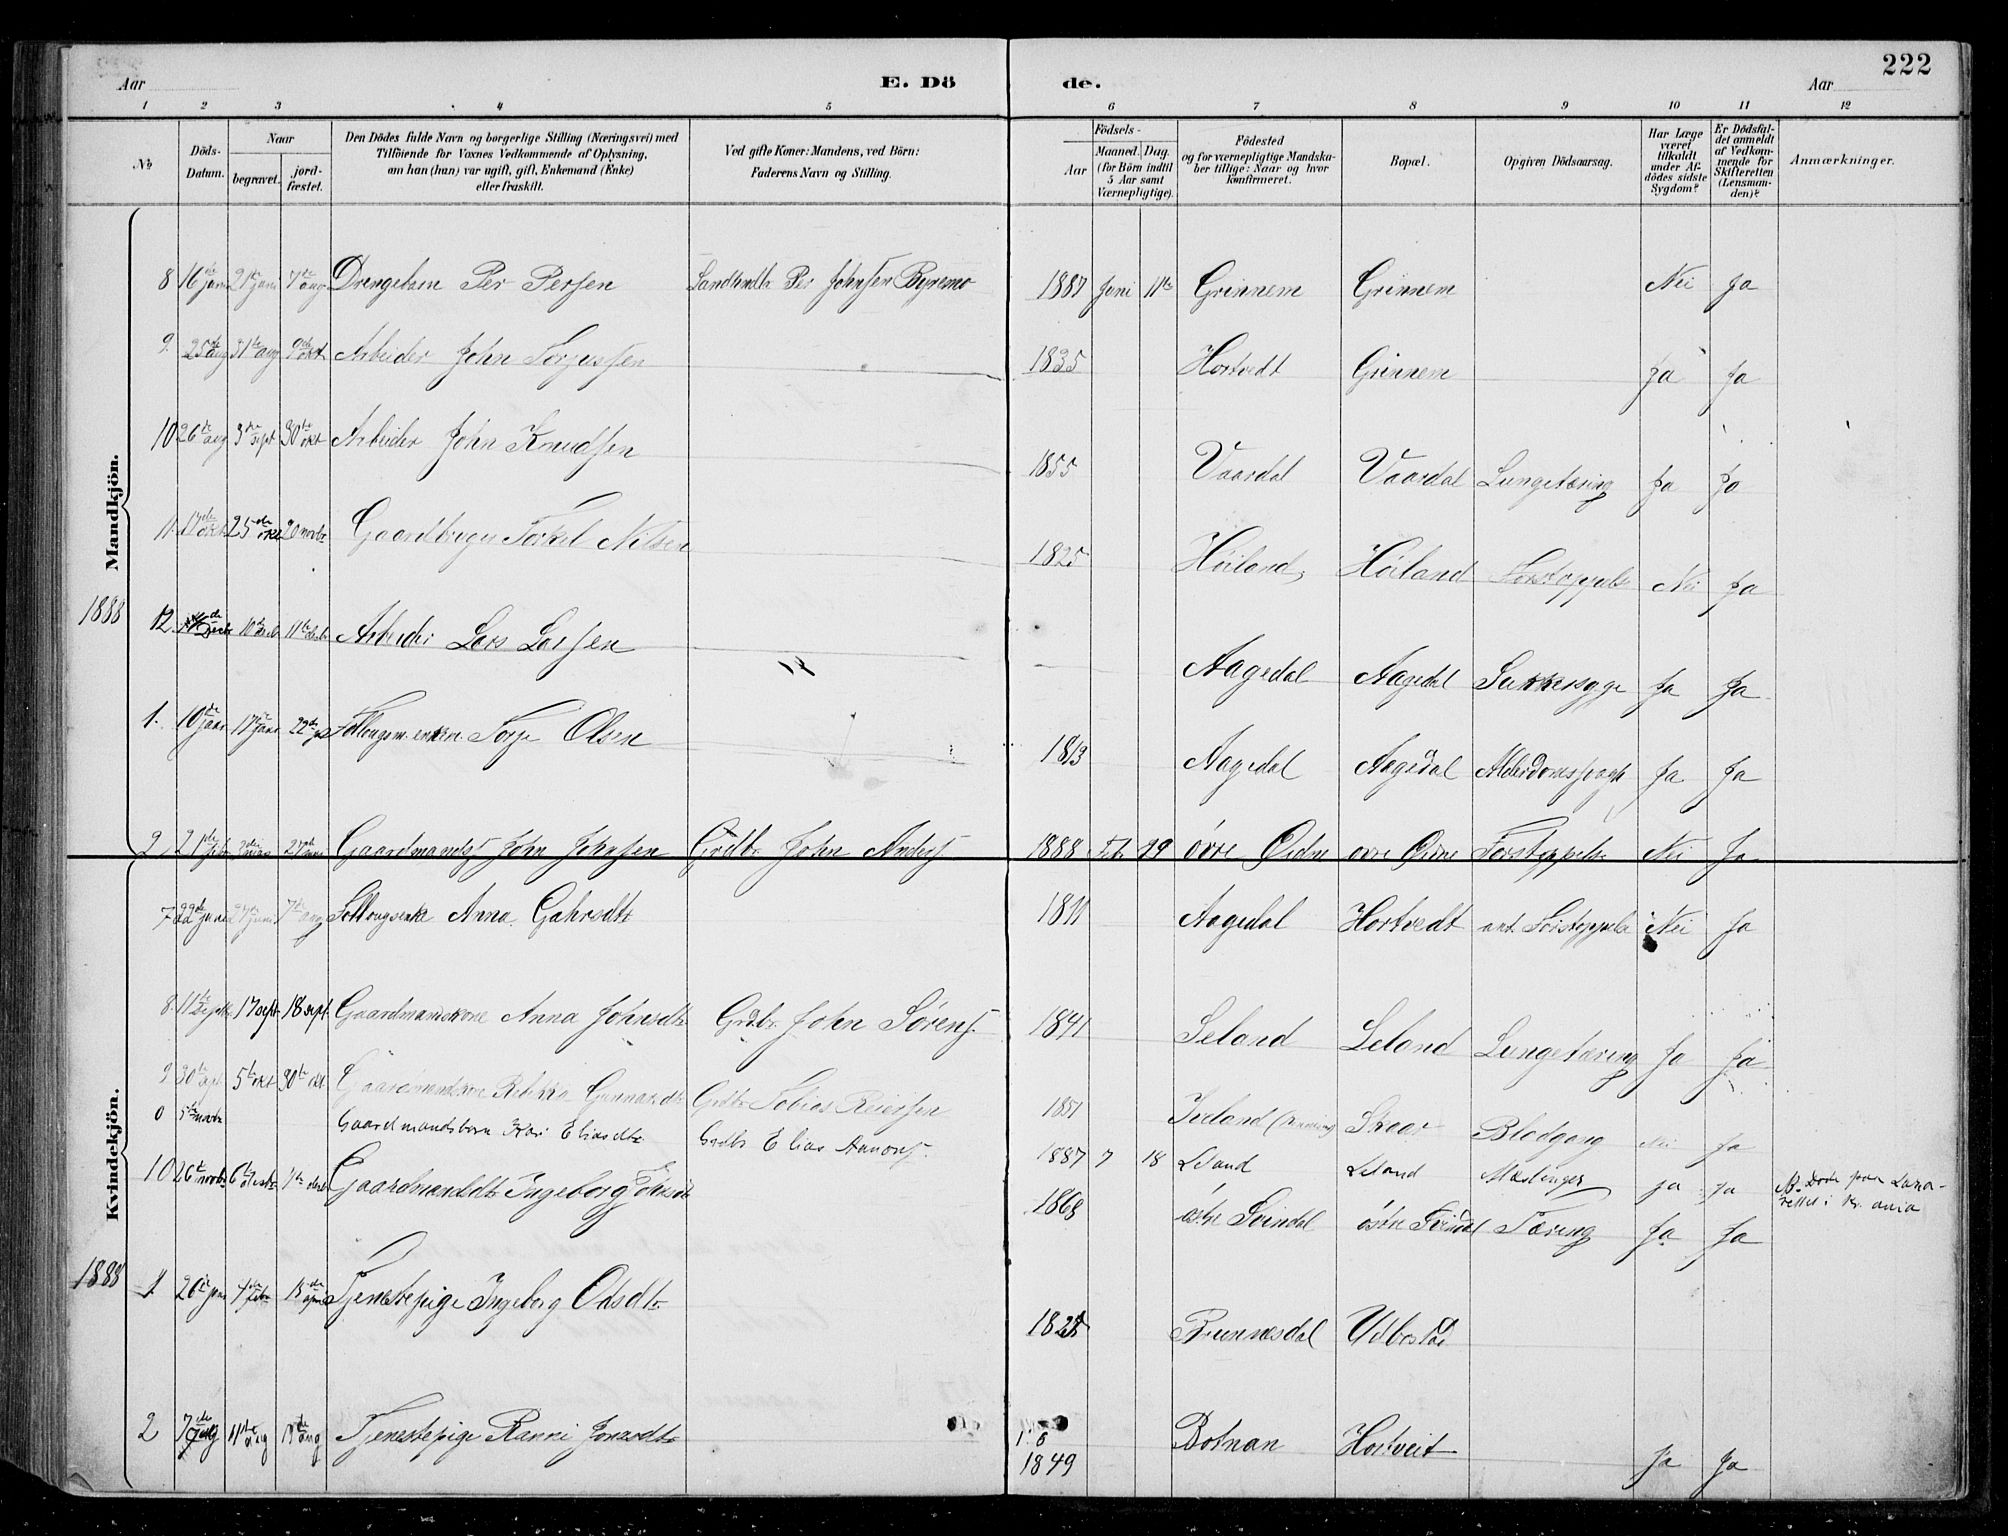 222
Aar E. Dö de. Aar
1 2 3 4 5 6 7 8 9 10 11 12
No. Döds-Datum. Naar begravet. jordfæstet. Den Dödes fulde Navn og borgerlige Stilling (Næringsvei) med Tilföiende for Voxnes Vedkommende af Oplysning, om han (hun) var ugift, gift, Enkemand (Enke) eller fraskilt. Ved gifte Koner: Mandens, ved Börn: Faderens Navn og Stilling. Födsels- Aar Maaned. Dag. (for Börn indtil 5 Aar samt Værnepligtige). Födested og for værnepligtige Mandskaber tillige: Naar og hvor konfirmeret. Bopæl. Opgiven Dödsaarsag. Har Læge været tilkaldt under Afdödes sidste Sygdom? Er Dödsfaldet anmeldt af Vedkommende for Skifteretten (Lensmanden)? Anmærkninger.
Mandkjön.
8 16de juni 21de juni 7de aug Drengebarn Per Persen Per Johnsen Byremo 1887 Juni 11te Grinnem Grinnem Nei Ja
9. 25de aug 31te aug 9de okt Arbeider John Torjussen 1835 Hortvedt Grinnem Ja Ja
10 26de aug 3de sept 30te okt Arbeider John Knudsen 1855 Vaardal Vaardal Lungetæring Ja Ja
11. 17de okt 25de okt 20 novbr Gaardbruger Torkel Nilsen 1825 Höiland Höiland Forstoppelse Nei Ja
12. 10de decb 11te decb Arbeider Lars Larsen Aagedal Aagedal Sukkersyge Ja Ja
1888
1. 10de jan 17de jan 22de Torje Olsen 1813 Aagedal Aagedal Alderdomssvagh Ja Ja
2 21de febr 2den mars Gaardmandss John Johnsen Grdbr. John Anders. 1888 Feb. 19 övre Öidne övre Öidne Forstoppelse Nei Ja
Kvindekjön.
7 22de juni 27de juni 7de aug Anna Gahrsdtr 1811 Aagedal Hortvedt ant. Forstoppelse Nei Ja
8. 11te sept 17 sept 18 sept Gaardmandskone Anna Johnsdtr Grdbr. John Sörens. 1841 Seland Seland Lungetæring Ja Ja
9 30te sept 5te okt 30te okt Gaardmandskone Rebekka Gunnarsdtr Grdbr Tobias Reiersen 1851 Iveland Skaar Blodgang Nei Ja
0 5te novbr Gaardmandsbarn Kari Eliasdtr. Grdbr Elias Aanons. 1887 7 18 Leland Leland Mæslinger Ja Ja
10 26te novbr 6te decbr 7de decb Gaardmandsdtr Ingeborg 1868 östre Svindal östre Svindal Tæring Ja Ja NB. Döde paa Lazarettet i Kr. ania
1888
1 26te jan 4de febr 18de april Tjenestepige Ingeborg Odsdtr. 1828 Brunnesdal Udbostad
2 7de aug 11te aug 19de aug Tjenestepige Ranni Jonsdtr 1849 Botnan Hortveit Ja Ja